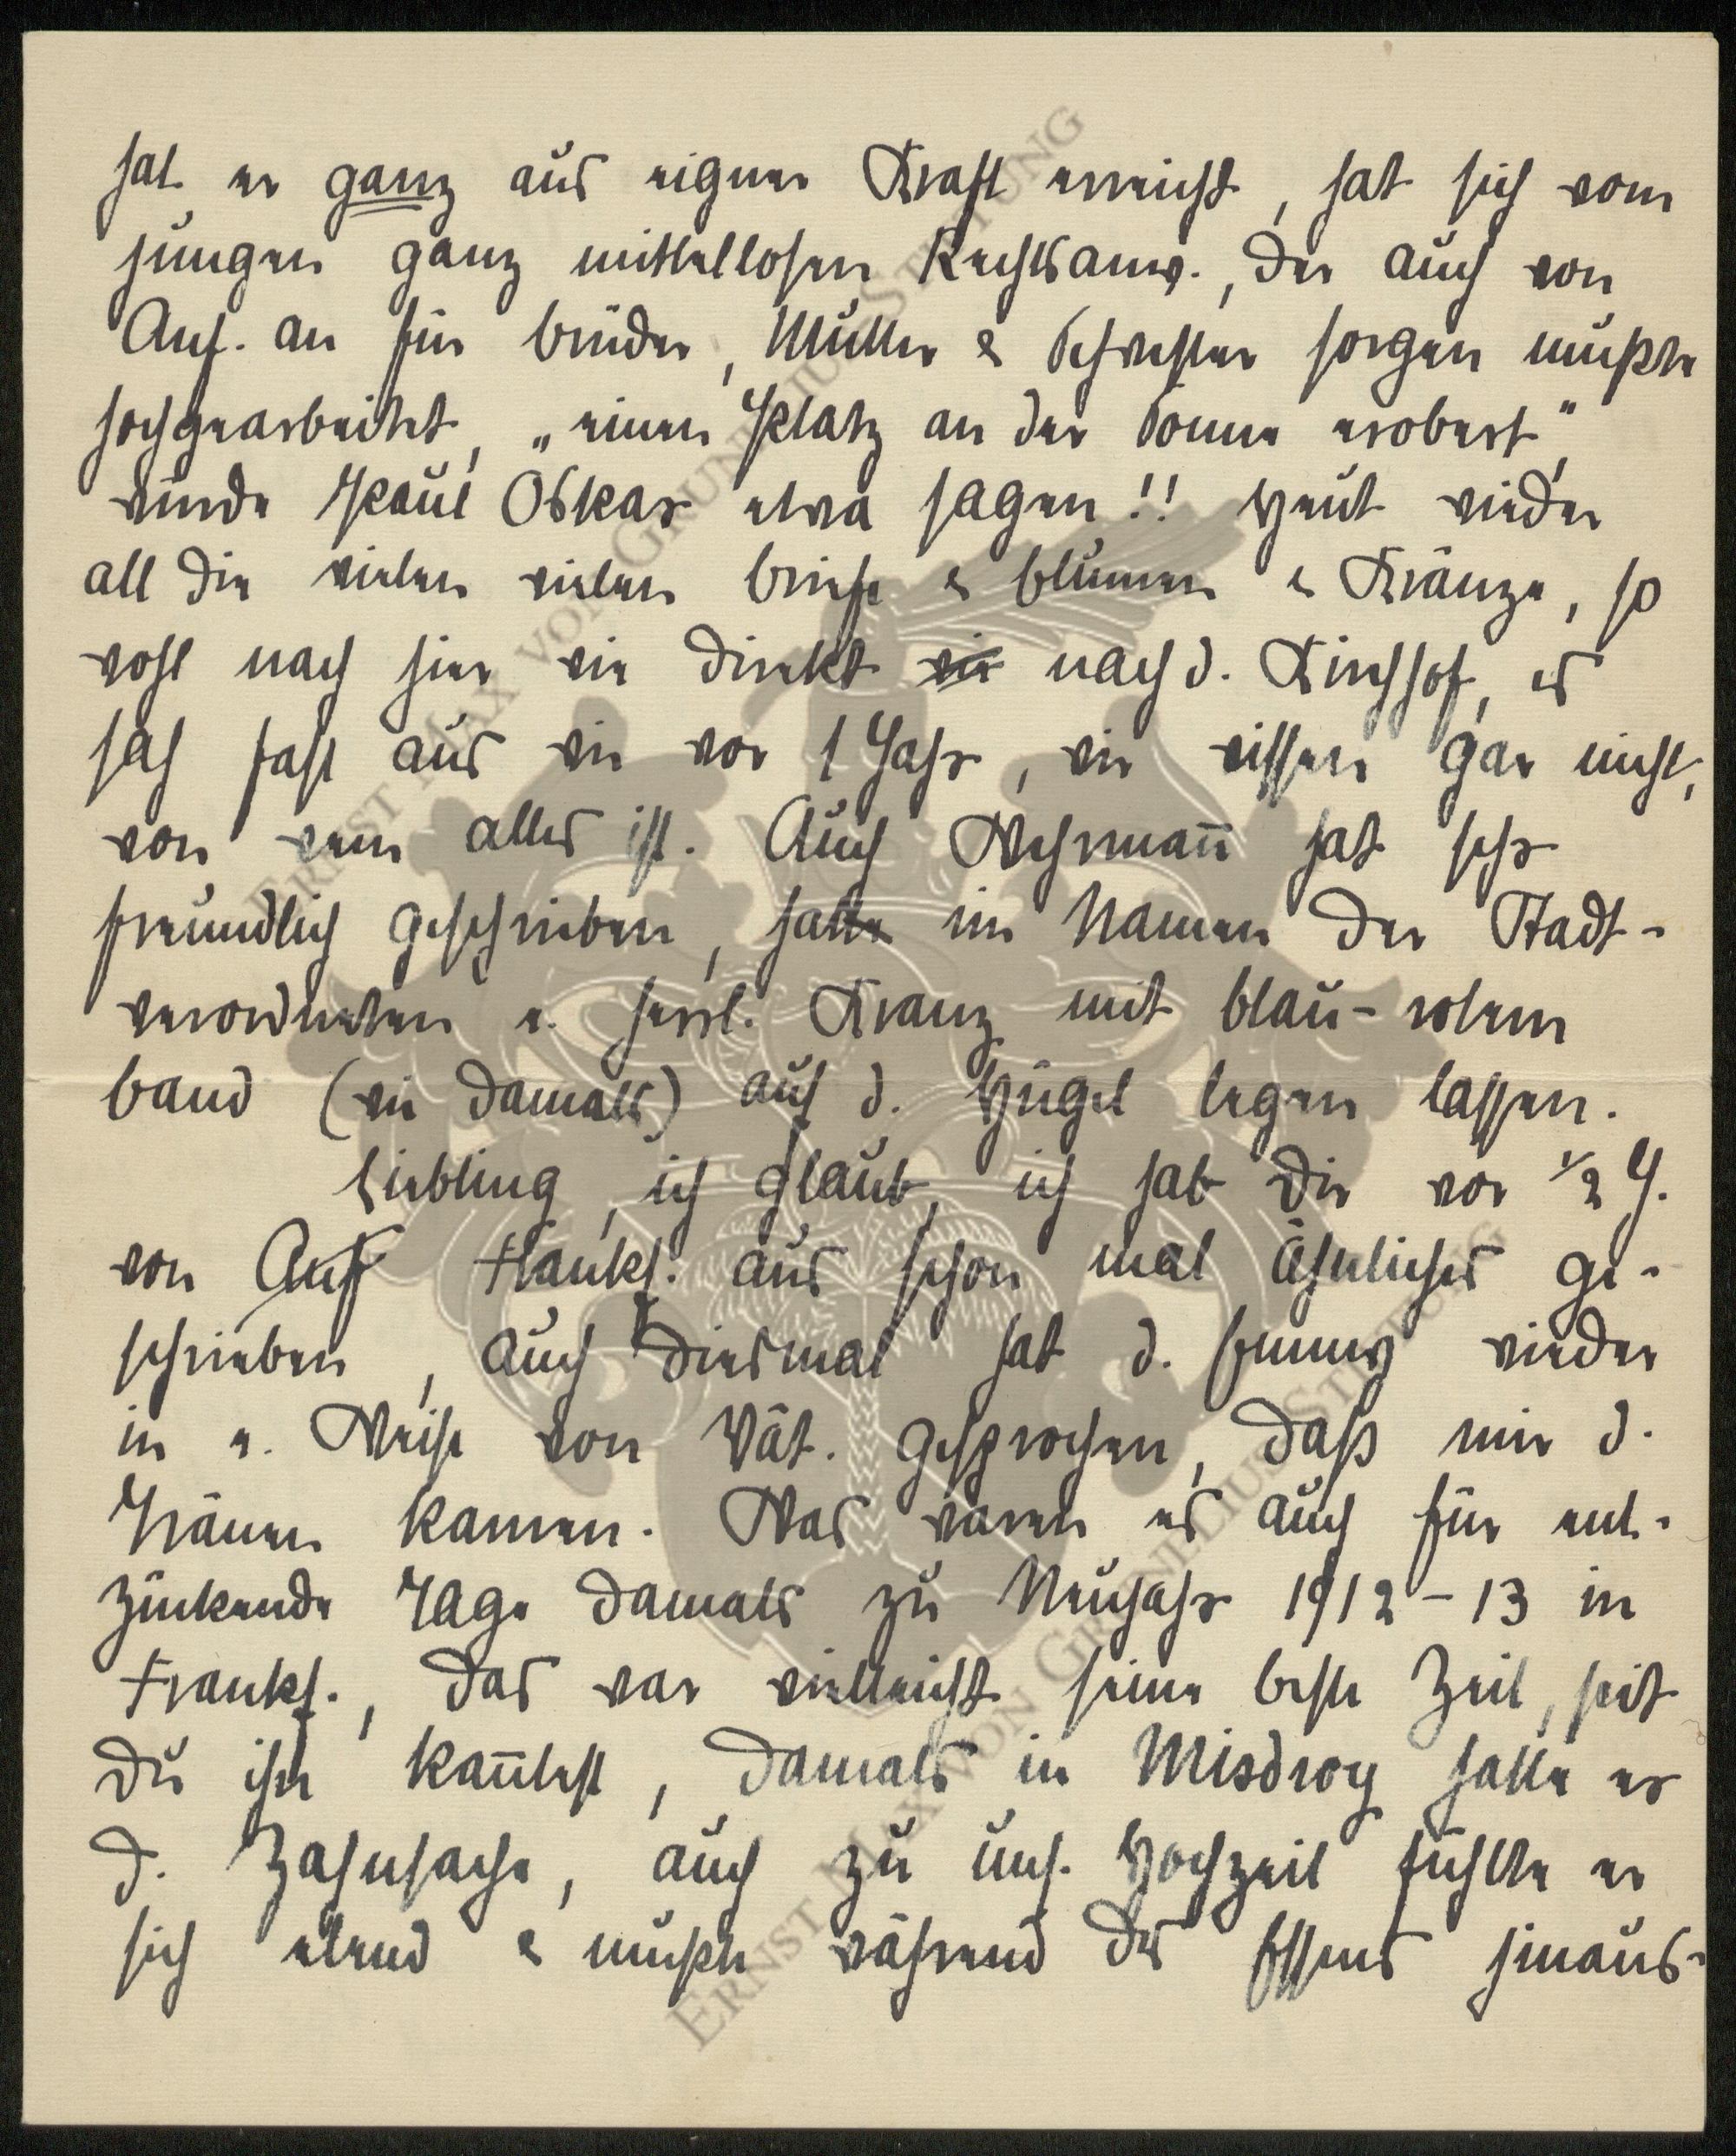 hat er ganz aus eigner Kraft erreicht, hat sich vom
jungen ganz mittellosen Rechtsanw., der auch von
Anf. an für Brüder, Mutter & Schwester sorgen mußte
hochgearbeitet, „einen Platz an der Sonne erobert“,
würde Paul Oskar etwa sagen!! Heut wieder
all die vielen vielen Briefe & Blumen & Kränze, so
wohl nach hier wie direkt wie nach d. Kirchhof, es
sah fast aus wie vor 1 Jahr, wir wissen gar nicht,
von wem alles ist. Auch Wehrmann hat sehr
freundlich geschrieben, hatte im Namen der Stadt-
verordneten e. herrl. Kranz mit blau-rotem
Band (wie damals) auf d. Hügel legen lassen.
Liebling, ich glaub, ich hab Dir vor 1/2 J.
von Auf Frankf. aus schon mal Ähnliches ge-
schrieben, auch diesmal hat d. wieder
in e. Weise von Vät. gesprochen, daß mir d.
Tränen kamen. Was waren es auch für ent-
zückende Tage damals zu Neujahr 1912-13 in
Frankf., das war vielleicht seine beste Zeit, seit
Du ihn kanntest, damals in Misdroy hatte er
d. Zahnsache, auch zu uns. Hochzeit fühlte er
sich elend & mußte während des Essens hinaus-
ERNST MAX VON GRUNELIUS STIFTUNG
ERNST MAX VON GRUNELIUS STIFTUNG